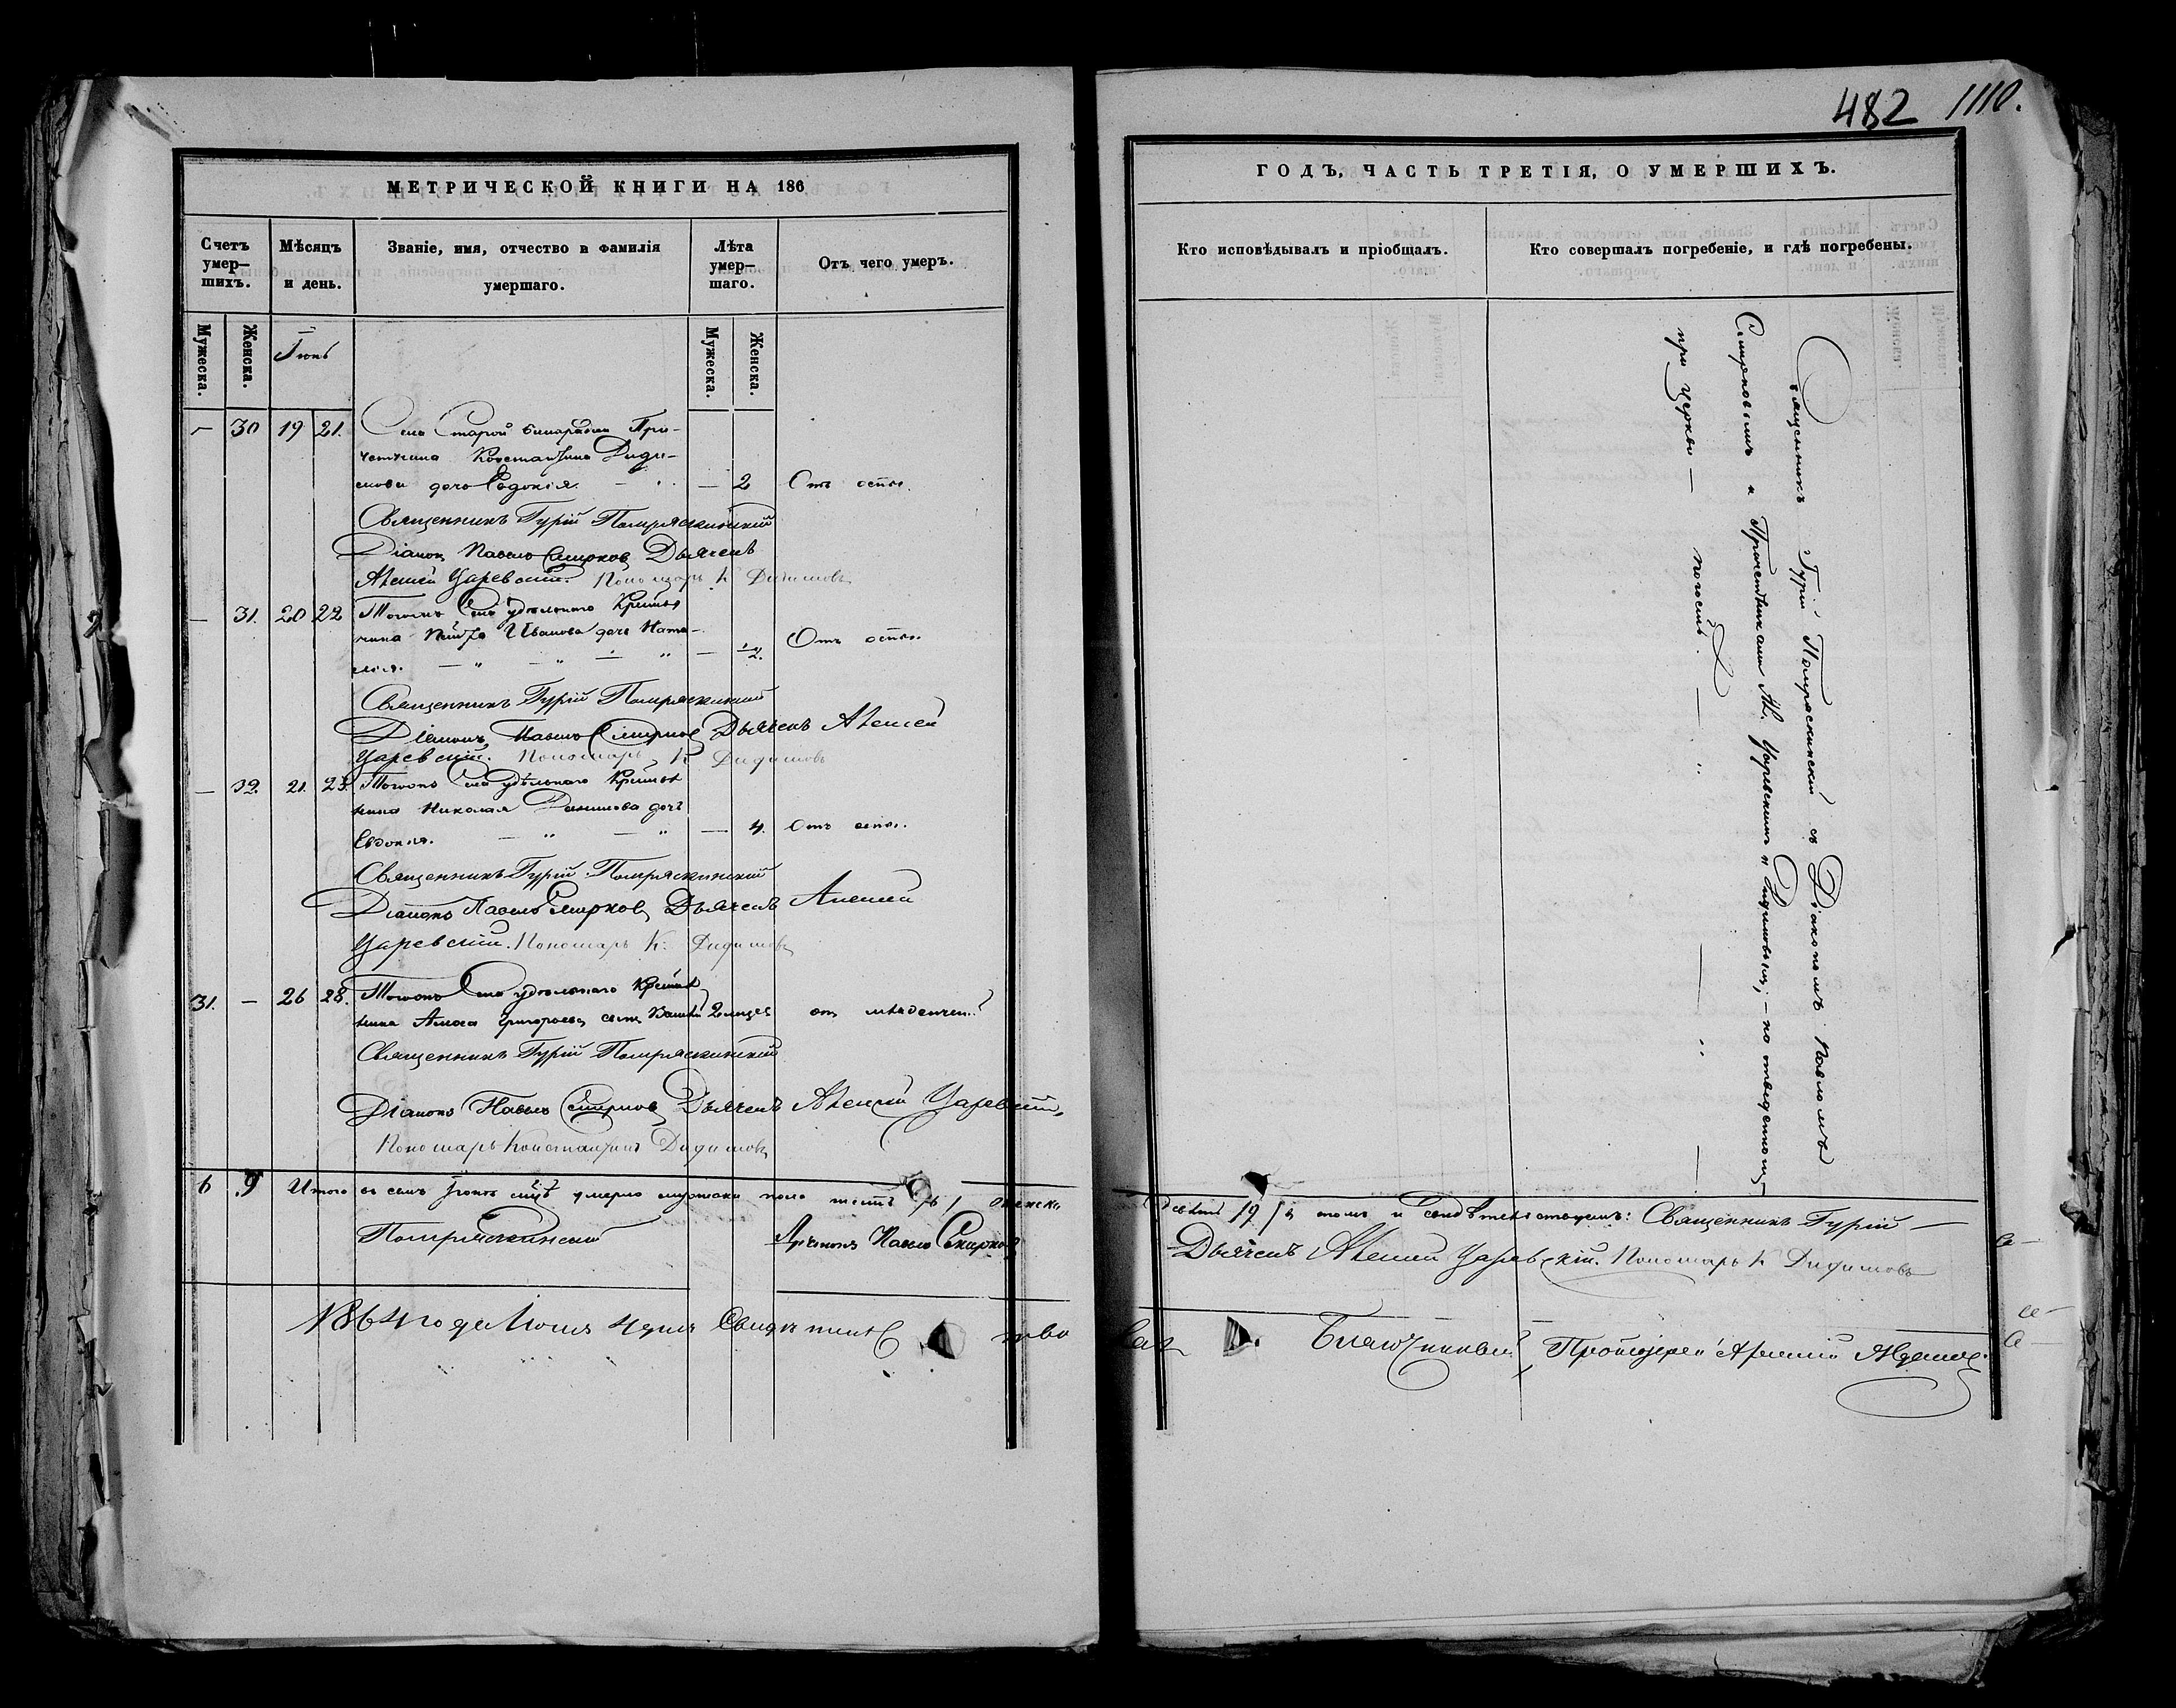 482 1110.
МЕТРИЧЕСКОЙ КНИГИ НА 186
Счетъ умер-шихъ.
Мѣсяцъ и день.
Званіе, имя, отчество и фамилія умершаго.
Лѣта умер-шаго.
Отъ чего умеръ.
Мужеска.
Женска.
Іюнь
Мужеска.
Женска.
— 30 19 21. Села Старой Бинарадки При-
четника Константина Диди-
мова дочь Евдокія. — 2 Отъ оспы.
Священникъ Гурій Помряскинскій
Діаконъ Павелъ Смирновъ Дьячекъ
Алексей Царевскій. Пономарь К Дидимовъ
— 31. 20 22 Тогожъ Села удѣльнаго Крестья
нина Петра Иванова дочь Ната-
лія. — 1/2. Отъ оспы.
Священникъ Гурій Помряскинскій
Діаконъ Павелъ Смирновъ Дьячекъ Алексей
Царевскій. Пономарь К Дидимовъ
— 32. 21. 23. Тогожъ Села удѣльнаго Крестья
нина Николая Данилова дочь
Евдокія. — 4. Отъ оспы.
Священникъ Гурій Помряскинскій
Діаконъ Павелъ Смирновъ Дьячекъ Алексей
Царевскій. Пономарь К. Дидимовъ
31. — 26 28. Тогожъ Села удѣльнаго Крестья
нина Григорьева сынъ 2 мцев отъ младенчес.
Священникъ Гурій Помряскинскій
Діаконъ Павелъ Смирновъ Дьячекъ Алексей Царевскій,
Пономарь Константинъ Дидимовъ
6 9 Итого въ семъ Іюнѣ мцѣ умерло мужеска пола шесть /6/ женска
Помряскинскій Діаконъ Павелъ Смирновъ
1864 года Июля 4 дня Свидѣтельс тво
ГОДЪ, ЧАСТЬ ТРЕТІЯ, О УМЕРШИХЪ.
Кто исповѣдывалъ и пріобщалъ.
Кто совершалъ погребеніе, и гдѣ погребены.
Священникъ Гурій Помряскинскій съ Діакономъ Павломъ
Смирновымъ и Причетниками Ал. Царевскимъ и Дидимовымъ, — на отведенномъ
при церкви — погостѣ. —
девять /9/ въ томъ и свидѣтельствуемъ: Священникъ Гурій —
Дьячекъ Алексей Царевскій. Пономарь К Дидимовъ
валъ Благочинный Протоіерей